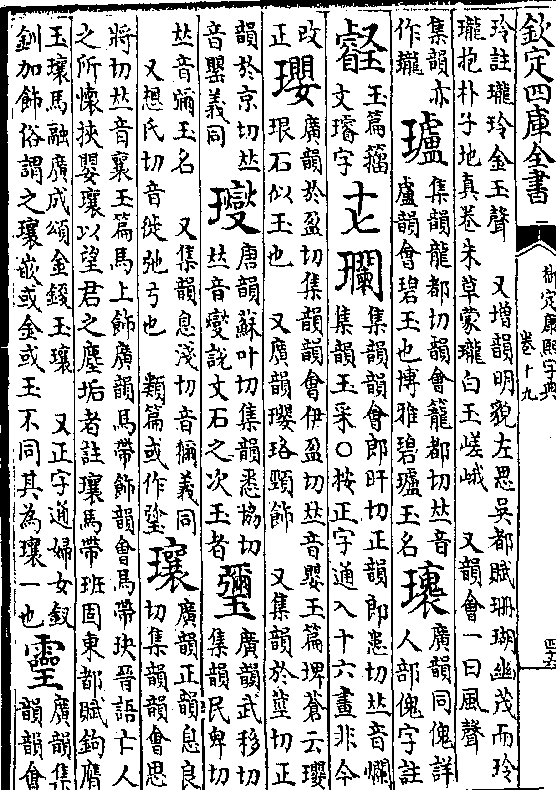 欽定四庫全書
御定康熙字典
卷十九
玲註瓏玲金玉聲　又增韻明貌左思吳都賦珊瑚幽茂而玲
瓏抱朴子地真卷朱草蒙瓏白玉嵯峨　又韻會一曰風聲
集韻亦
作
瓐
集韻龍都切韻會籠都切𠀤音
盧韻會碧玉也博雅碧瓐玉名
瓌
廣韻同傀詳
人部傀字註
壡
玉篇籀
文璿字
十七
瓓
集韻韻會郎旰切正韻郎患切𠀤音爛
集韻玉采○按正字通入十六畫非今
改
正
瓔
廣韻於盈切集韻韻會伊盈切𠀤音嬰玉篇埤蒼云瓔
琅石似玉也　又廣韻瓔珞頸飾　又集韻於莖切正
韻於京切𠀤
音罌義同
𤪎
唐韻蘇叶切集韻悉協切
𠀤音燮說文石之次玉者
瓕
廣韻武移切
集韻民卑切
𠀤音彌玉名　又集韻息淺切音獮義同
又想氏切音徙弛弓也　類篇或作壐
瓖
廣韻正韻息良
切集韻韻會思
將切𠀤音襄玉篇馬上飾廣韻馬帶飾韻會馬帶玦晉語亡人
之所懷挾嬰瓖以望君之塵垢者註瓖馬帶班固東都賦鉤膺
玉瓖馬融廣成頌金鍐玉瓖　又正字通婦女釵
釧加飾俗謂之瓖嵌或金或玉不同其為瓖一也
靈
廣韻集
韻韻會